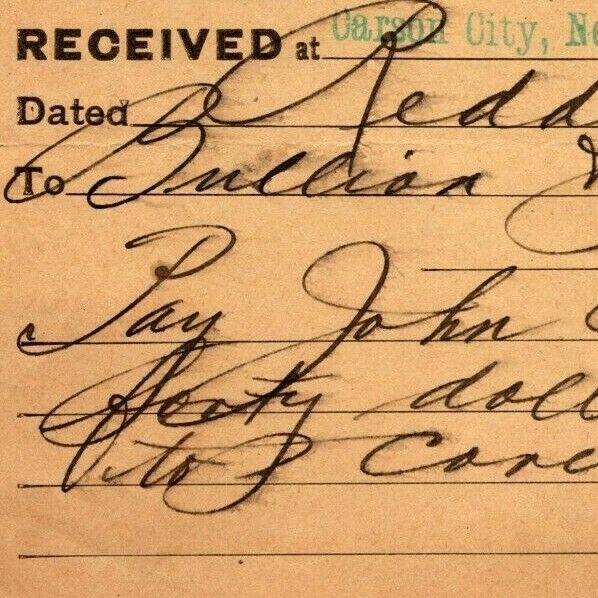 RECEIVED at Carson City, Ne
Dated Redd
To Bullion
Pay John
forty doll
to